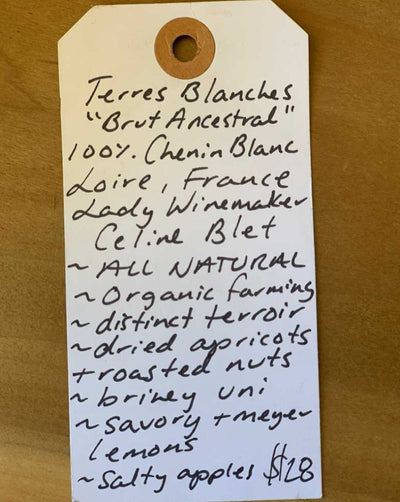 Terres Blanches
"Brut Ancestral"
100%. Chenin Blanc
Loire, France
Lady Winemaker
Celine Blet
~ ALL NATURAL
~ Organic farming
~ distinct terroir
~ dried apricots
+ roasted nuts
~ briney uni
~ savory + meyer
lemons
~ salty apples $28